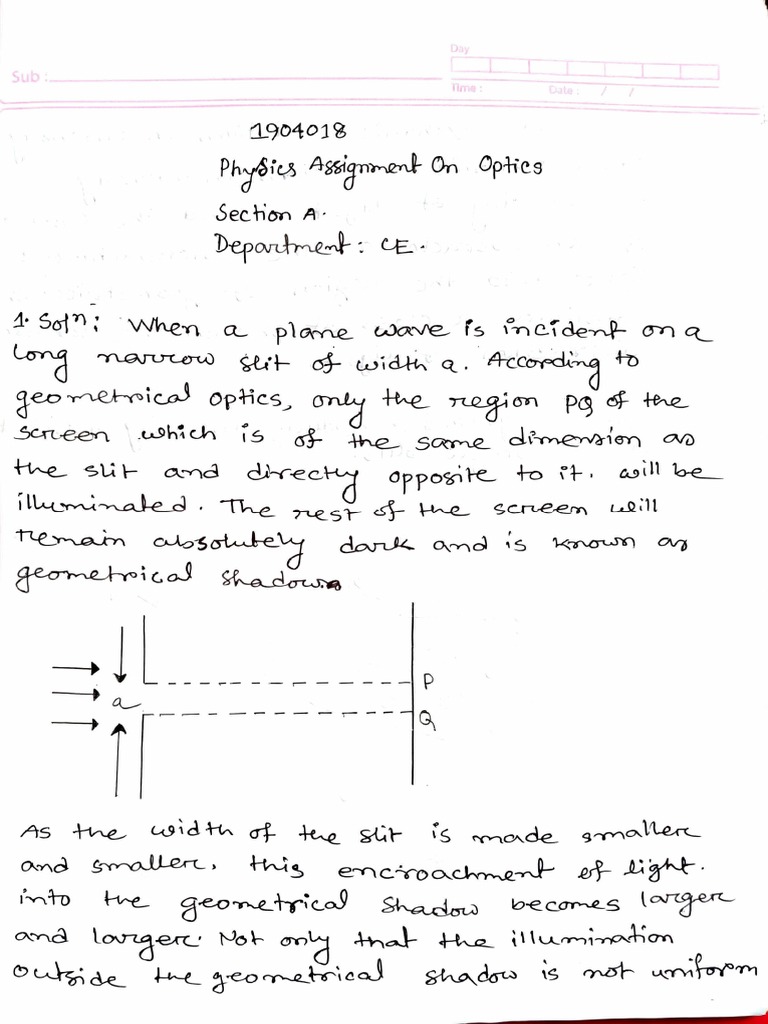 Day
Sub :
Time :
Date : / /
1904018
Physics Assignment On Optics
Section A.
Department: CE.
1. Solⁿ: When a plane wave is incident on a
long narrow slit of width a. According to
geometrical optics, only the region PQ of the
screen which is of the same dimension as
the slit and directly opposite to it. will be
illuminated. The rest of the screen will
remain absolutely dark and is known as
geometrical shadow.
P
a
Q
As the width of the slit is made smaller
and smaller, this encroachment of light.
into the geometrical shadow becomes larger
and larger. Not only that the illumination
outside the geometrical shadow is not uniform